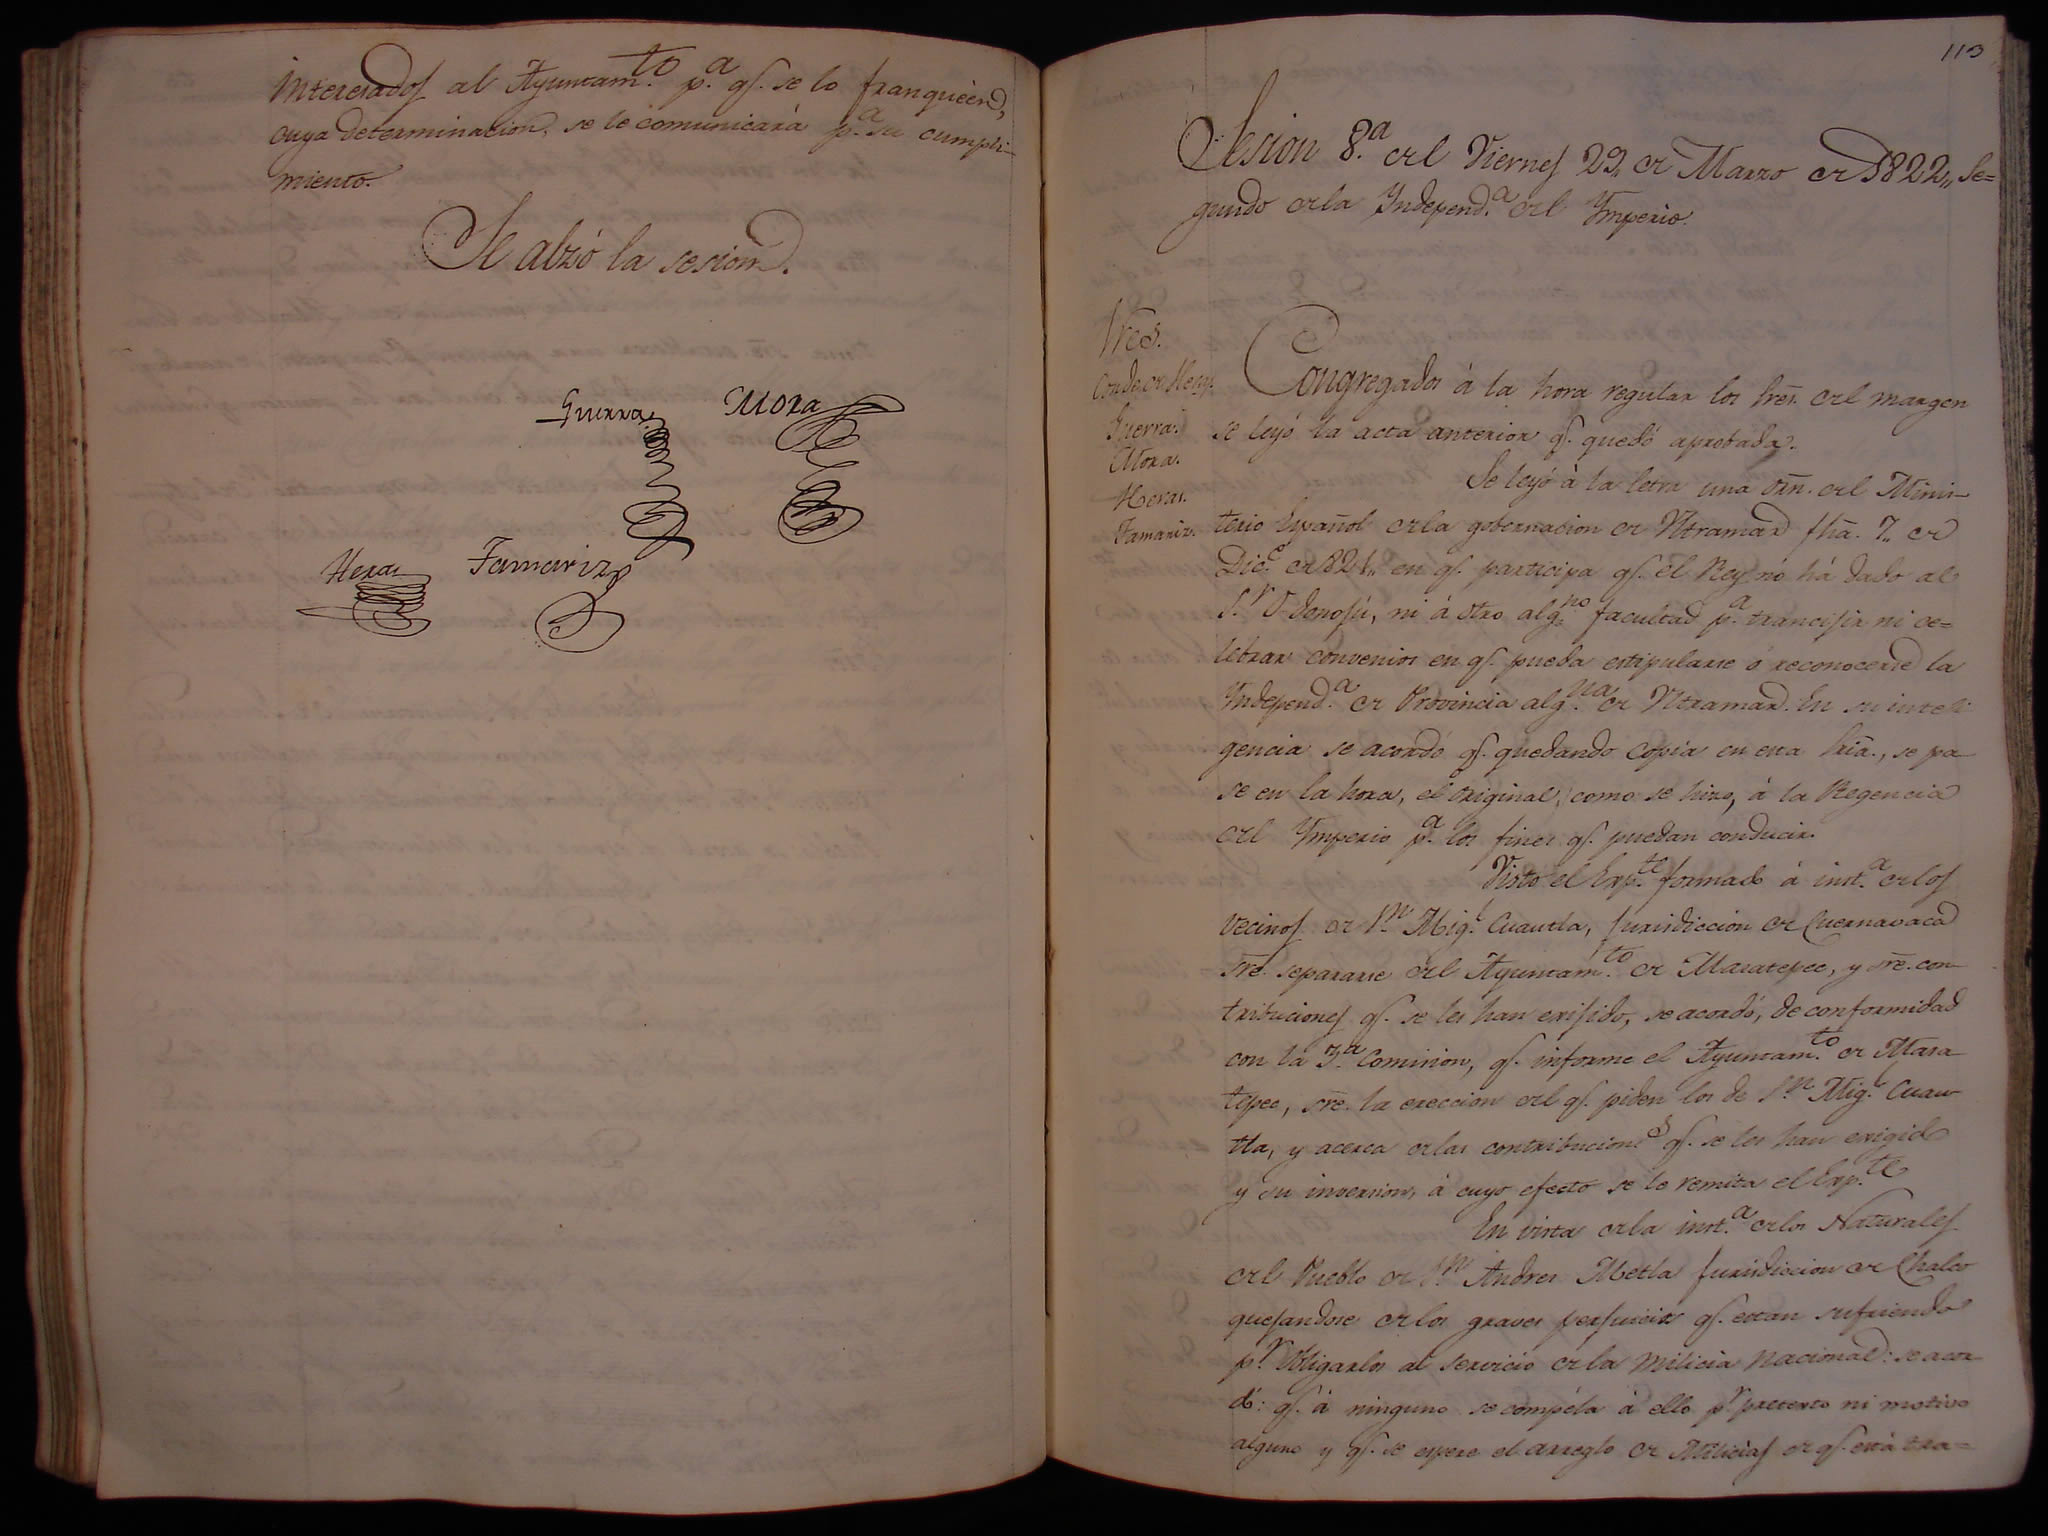 Interesados al Ayuntam.to p.a q.e se lo franqueen,
cuya determinacion, se le comunicará p.a su cumpli-
miento.
Se alzó la sesion.
Guerra. Mora
Heras Tamariz
113
Sesion 8.a del Viernes 29,, de Marzo de 1822,, Se=
gundo de la Independ.a del Ymperio.
Sres.
Conde de Heras.
Guerra.
Mora.
Heras.
Tamariz.
Congregados á la hora regular los Sres. del margen
se leyó la acta anterior q.e quedó aprobada.
Se leyó à la letra una Orn. del Minis-
terio Español de la gobernacion de Ultramar fha. 7,, de
Dic.e de 821,, en q.e participa q.e el Rey no há dado al
S.r O-Donojú, ni á otro alg.no facultad p.a trancijir ni ce=
lebrar convenios en q.e pueda estipularse ó reconocerse la
Independ.a de Provincia alg.na de Ultramar. En su inteli
gencia se acordó q.e quedando copia en esta Sria., se pa-
se en la hora, el original, como se hizo, á la Regencia
del Ymperio p.a los fines q.e puedan conducir.
Visto el Exp.te formado á inst.a de los
vecinos de S.n Mig.l Cuautla, Jurisdiccion de Cuernavaca
sre. separarse del Ayuntam.to de Mazatepec, y sre. con-
tribuciones q.e se les han exijido, se acordó, de conformidad
con la 3.a Comision, q.e informe el Ayuntam.to de Maza-
tepec, sre. la ereccion del q.e piden los de S.n Mig.l Cuau-
tla, y acerca de las contribucion.s q.e se les han exigido
y su inversion, á cuyo efecto se le remita el Exp.te
En vista de la inst.a de los Naturales
del Pueblo de S.n Andres Metla Jurisdiccion de Chalco
quejandose de los graves perjuicios q.e estan sufriendo
p.r obligarlos al servicio de la milicia nacional: se acor-
dó: q.e á ninguno se compéla á ello p.r pretexto ni motivo
alguno y q.e se espere el arreglo de Milicias de q.e está tra=